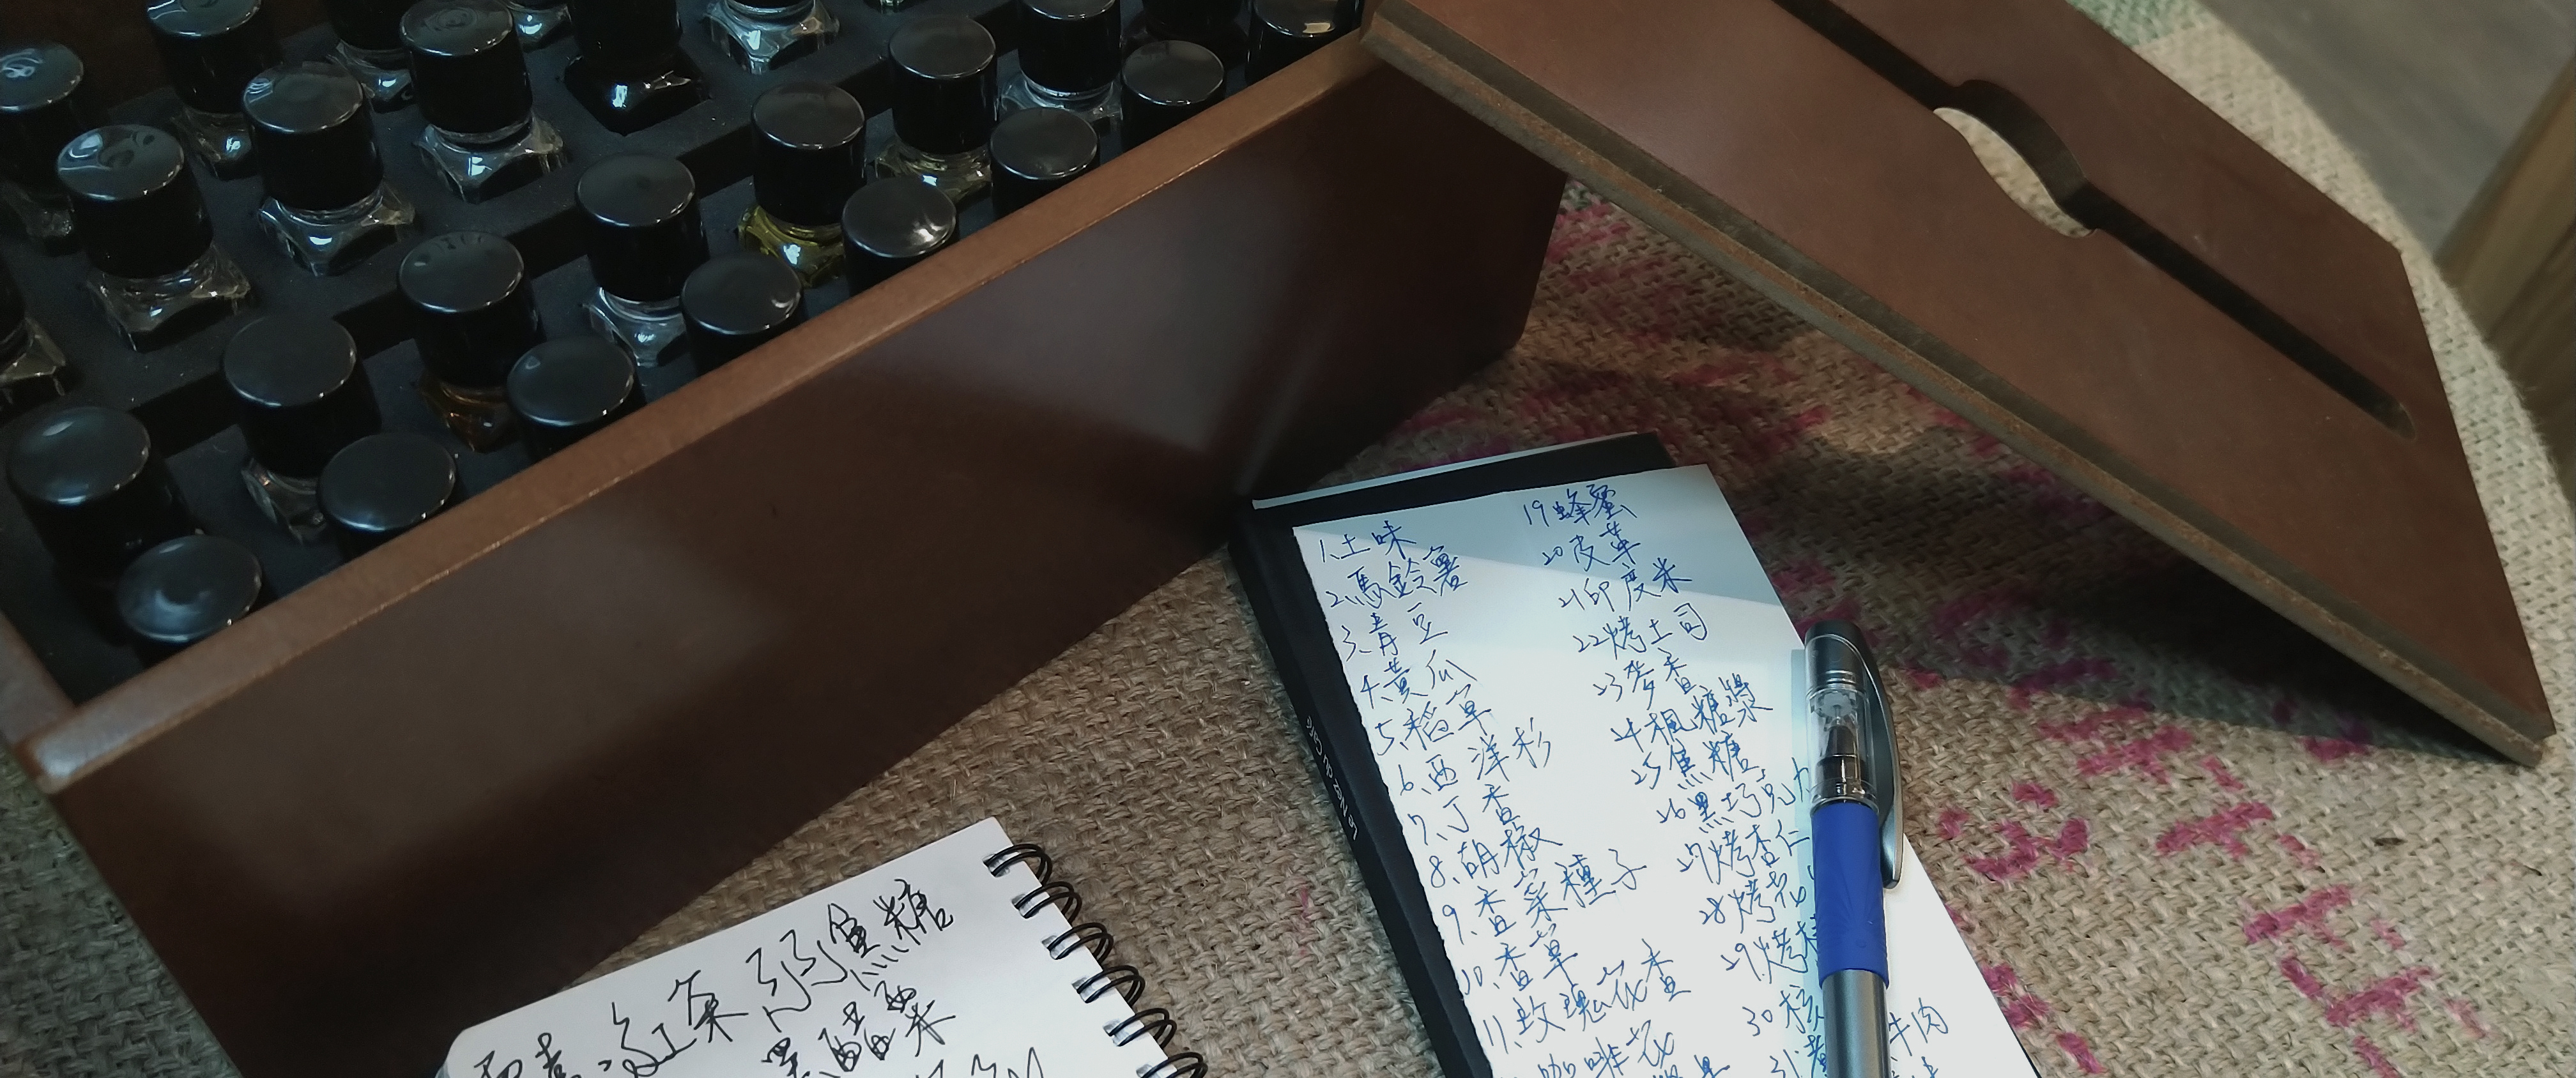 1.土味
2.馬鈴薯
3.青豆
4.黃瓜
5.稻草
6.西洋杉
7.丁香
8.胡椒
9.香菜種子
10.香草
11.玫瑰花香
咖啡花
19蜂蜜
20皮革
21印度米
22烤土司
23麥香
24楓糖漿
25焦糖
26黑巧克力
27烤杏仁
28烤花
29烤
30核
31
牛肉
Le Nez du Café
紅茶 焦糖
黑醋栗